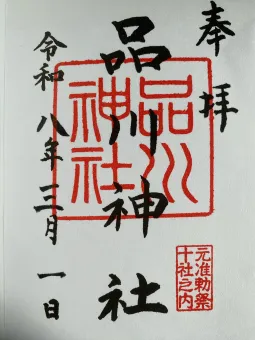 奉拝
品川神社
品川神社
元准勅祭
十社之内
令和八年三月一日